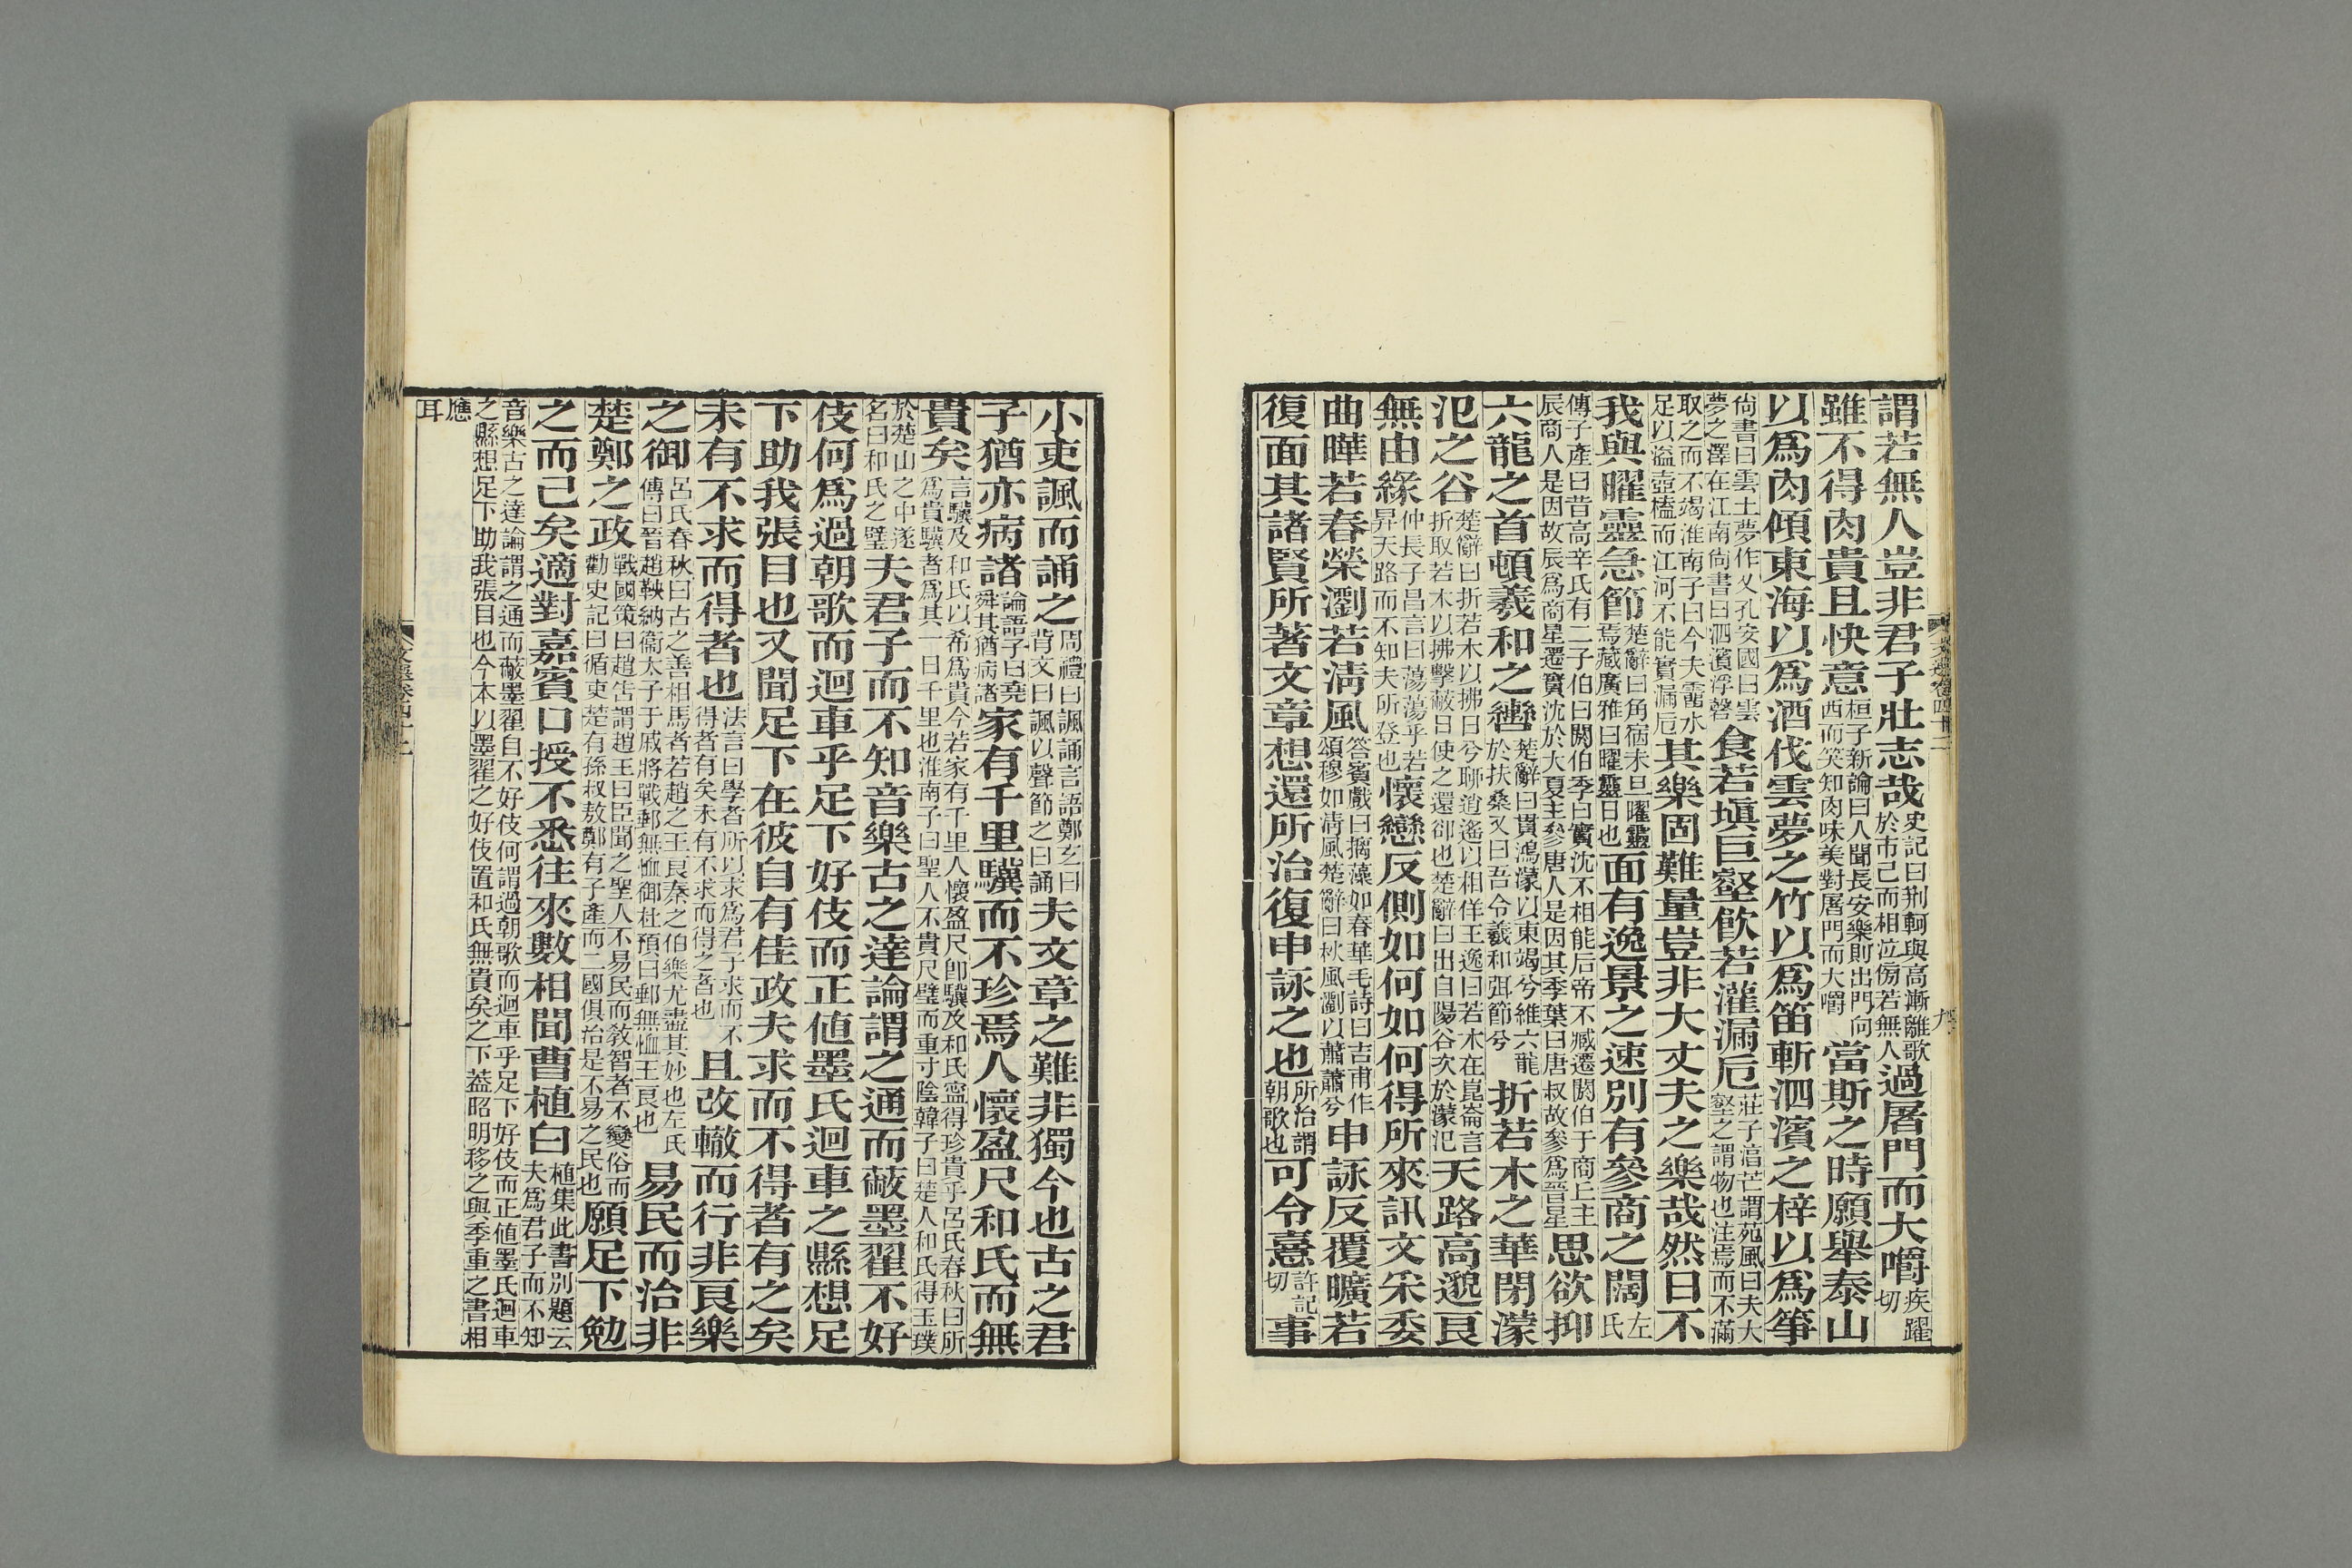 謂若無人豈非君子壯志哉史記曰荆軻與高漸離歌於市己而相泣傍若無人過屠門而大嚼疾躍切
雖不得肉貴且快意桓子新論曰人聞長安樂則出門向西而笑知肉味美對屠門而大嚼當斯之時願舉泰山
以爲肉傾東海以爲酒伐雲夢之竹以爲笛斬泗濱之梓以爲箏
尙書曰雲土夢作乂孔安國曰雲夢之澤在江南尙書曰泗濱浮磬食若塡巨壑飮若灌漏卮莊子淳芒謂苑風曰夫大壑之謂物也注焉而不滿
取之而不竭淮南子曰今夫霤水足以溢壺榼而江河不能實漏卮其樂固難量豈非大丈夫之樂哉然日不
我與曜靈急節楚辭曰角宿未旦曜靈焉藏廣雅曰曜靈日也面有逸景之速別有參商之闊左氏
傳子產曰昔高辛氏有二子伯曰閼伯季曰實沈不相能后帝不臧遷閼伯于商丘主辰商人是因故辰爲商星遷實沈於大夏主參唐人是因其季葉曰唐叔故參爲晉星思欲抑
六龍之首頓羲和之轡楚辭曰貫鴻濛以東竭兮維六龍於扶桑又曰吾令羲和弭節兮折若木之華閉濛
汜之谷楚辭曰折若木以拂日兮聊逍遙以相佯王逸曰若木在崑崙言折取若木以拂擊蔽日使之還卻也楚辭曰出自陽谷次於濛汜天路高邈良
無由緣仲長子昌言曰蕩蕩乎若昇天路而不知夫所登也懷戀反側如何如何得所來訊文采委
曲曄若春榮瀏若淸風答賓戲曰摛藻如春華毛詩曰吉甫作頌穆如淸風楚辭曰秋風瀏以蕭蕭兮申詠反覆曠若
復面其諸賢所著文章想還所治復申詠之也所治謂朝歌也可令憙許記切事
文選卷四十二 九
小吏諷而誦之周禮曰諷誦言語鄭玄曰背文曰諷以聲節之曰誦夫文章之難非獨今也古之君
子猶亦病諸論語子曰堯舜其猶病諸家有千里驥而不珍焉人懷盈尺和氏而無
貴矣言驥及和氏以希爲貴今若家有千里人懷盈尺卽驥及和氏寧得珍貴乎呂氏春秋曰所爲貴驥者爲其一日千里也淮南子曰聖人不貴尺璧而重寸陰韓子曰楚人和氏得玉璞
於楚山之中遂名曰和氏之璧夫君子而不知音樂古之達論謂之通而蔽墨翟不好
伎何爲過朝歌而迴車乎足下好伎而正値墨氏迴車之縣想足
下助我張目也又聞足下在彼自有佳政夫求而不得者有之矣
未有不求而得者也法言曰學者所以求爲君子求而不得者有矣未有不求而得之者也且改轍而行非良樂
之御呂氏春秋曰古之善相馬者若趙之王良秦之伯樂尤盡其妙也左氏傳曰晉趙鞅納衞太子于戚將戰郵無恤御杜預曰郵無恤王良也易民而治非
楚鄭之政戰國策曰趙告謂趙王曰臣聞之聖人不易民而敎智者不變俗而勸史記曰循吏楚有孫叔敖鄭有子產而二國俱治是不易之民也願足下勉
之而已矣適對嘉賓口授不悉往來數相聞曹植白植集此書別題云夫爲君子而不知
音樂古之達論謂之通而蔽墨翟自不好伎何謂過朝歌而迴車乎足下好伎而正値墨氏迴車之縣想足下助我張目也今本以墨翟之好伎置和氏無貴矣之下葢昭明移之與季重之書相
應耳
文選卷四十二